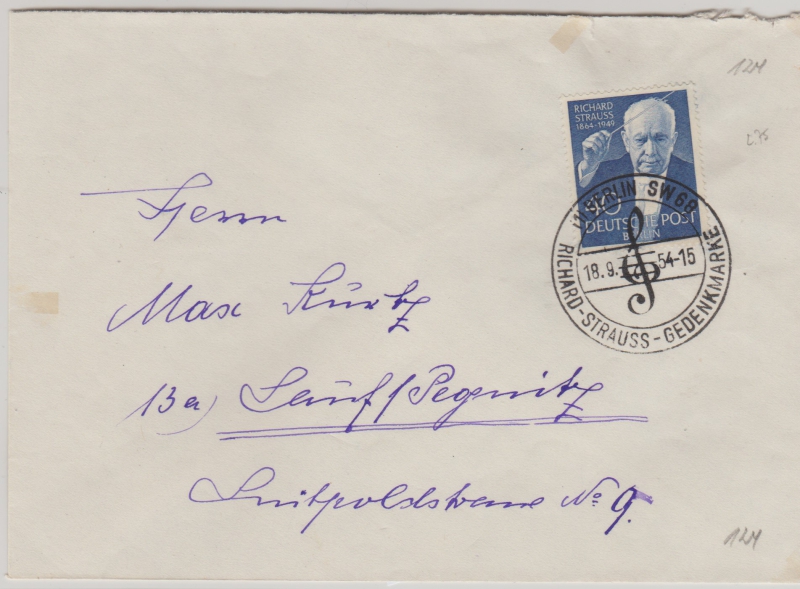 12M
2.75
RICHARD
STRAUSS
1864-1949
40
DEUTSCHE POST
BERLIN
(1) BERLIN SW 68
18.9. 54-15
RICHARD-STRAUSS-GEDENKMARKE
Herrn
Max Kürtz
13a) Lauf/Pegnitz
Luitpoldstrasse No 9.
12M